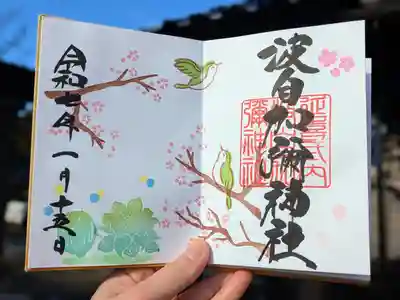 波自加彌神社
延喜式内
彌神社
令和七年一月十五日